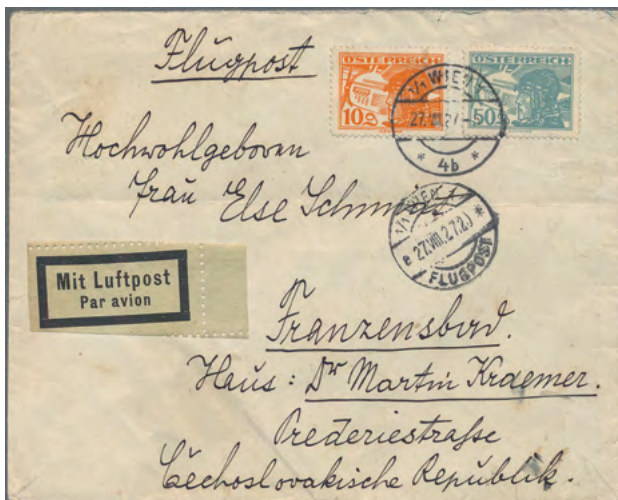 Flugpost
ÖSTERREICH
ÖSTERREICH
10g
50g
1/1 WIEN 1
27.VIII.27
* 4b *
Hochwohlgeboren
Frau Else Schmidt
1/1 WIEN 1
27.VIII.27.20
e FLUGPOST *
Mit Luftpost
Par avion
Franzensbad.
Haus: Dr Martin Kraemer.
Prederiestraße
Čechoslovakische Republik.